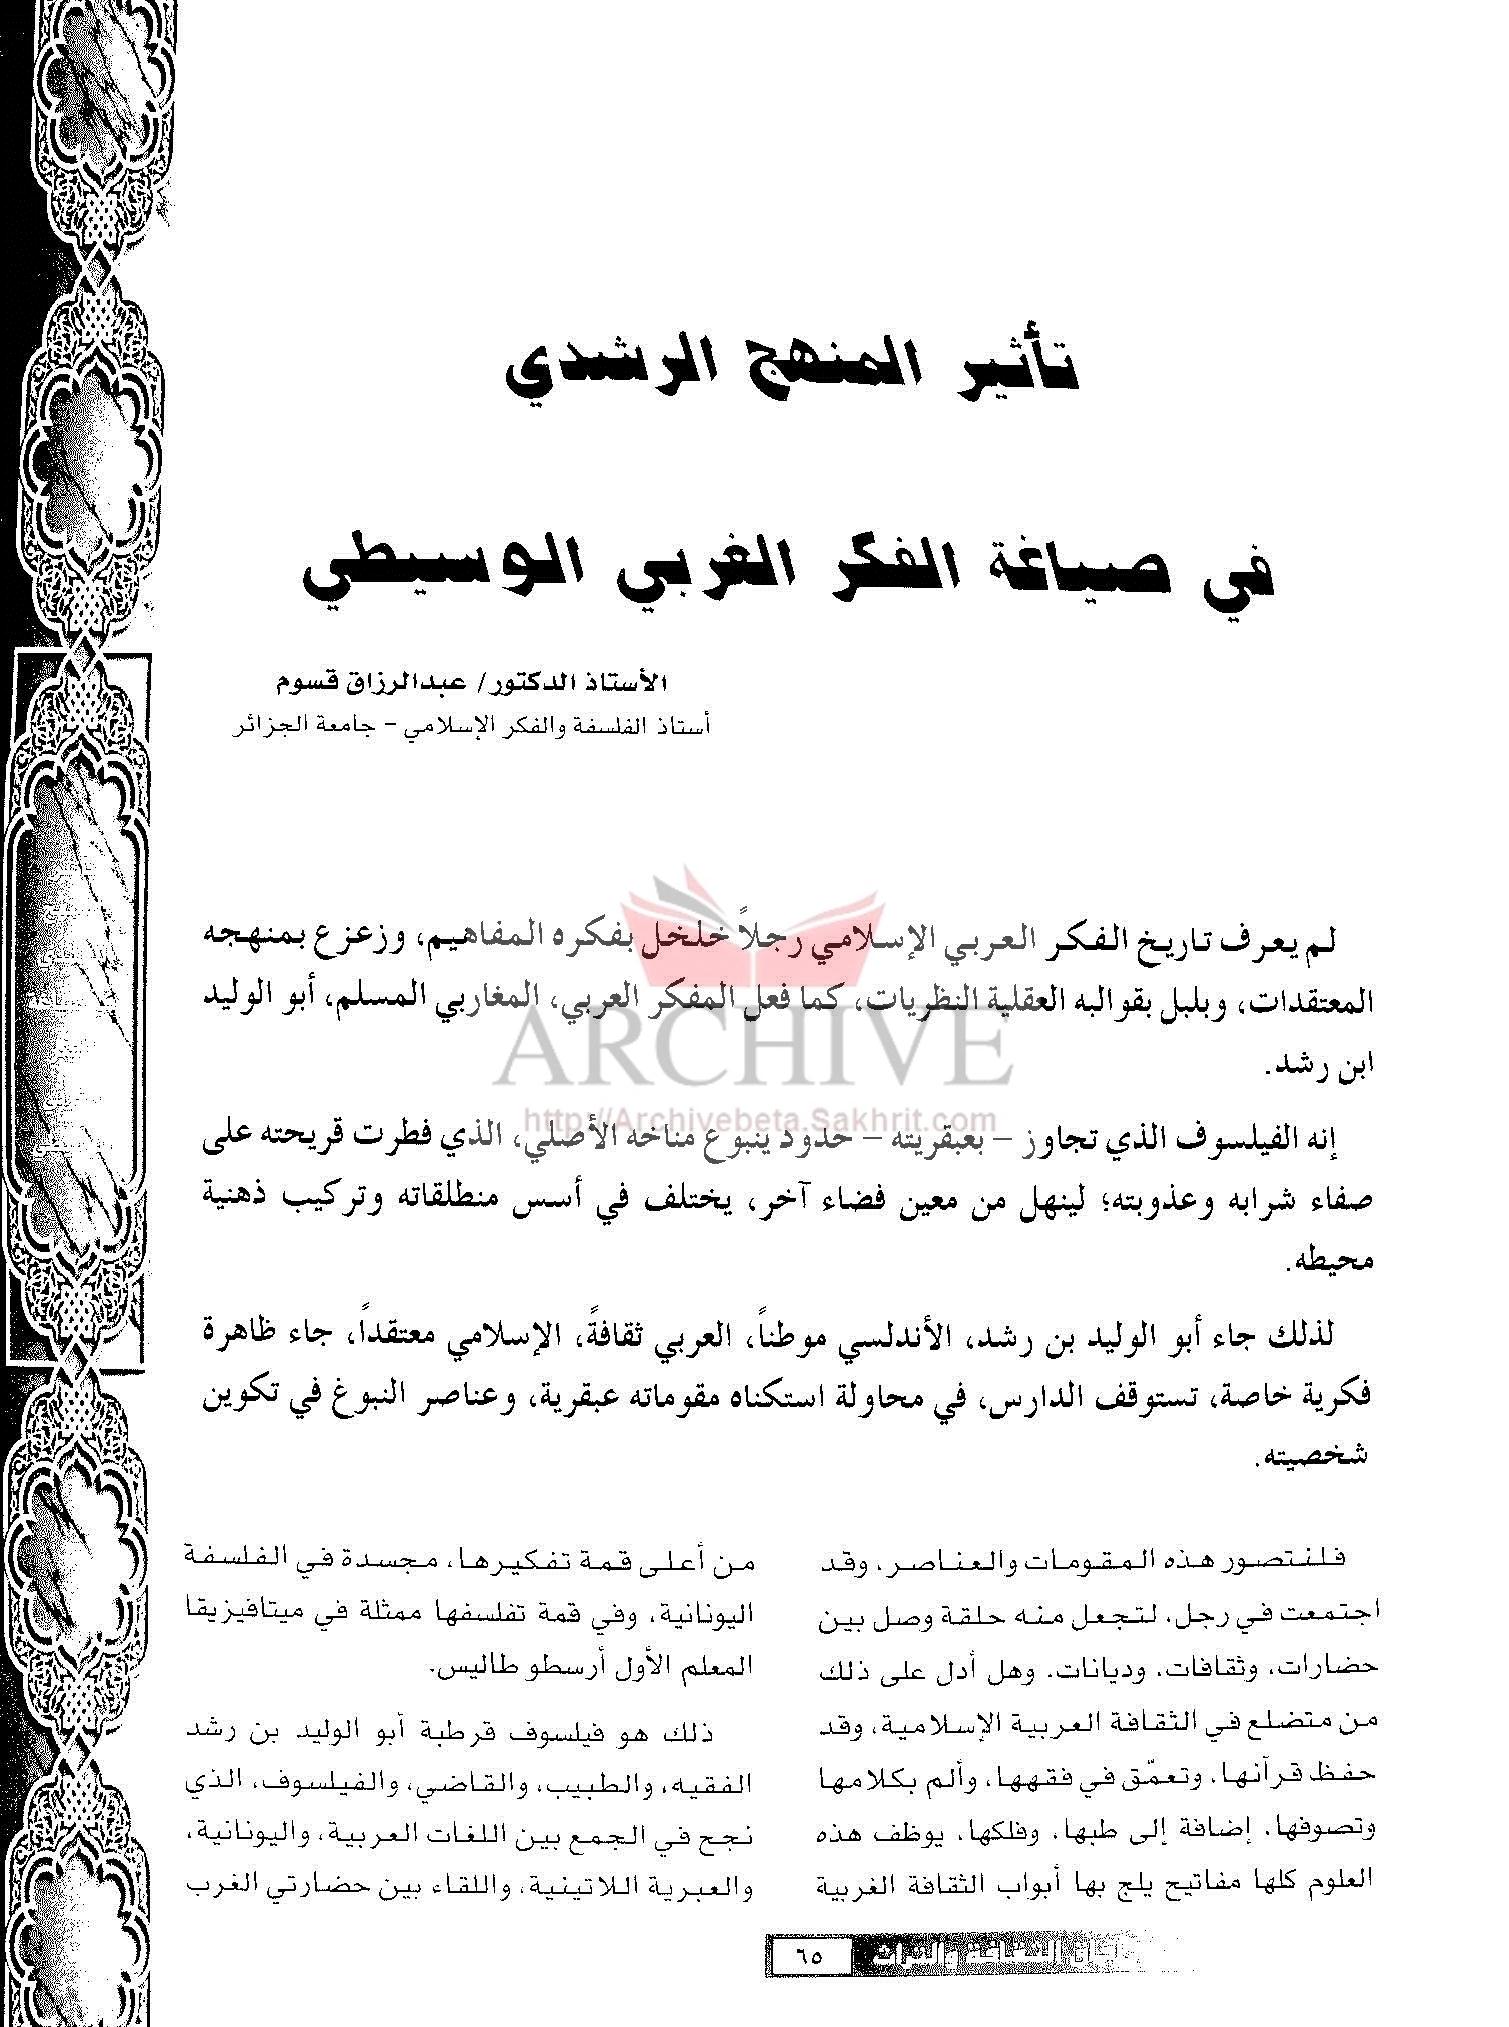 تأثير المنهج الرشدي
في صياغة الفكر الغربي الوسيطي
الأستاذ الدكتور/ عبدالرزاق قسوم
أستاذ الفلسفة والفكر الإسلامي - جامعة الجزائر
لم يعرف تاريخ الفكر العربي الإسلامي رجلاً خلخل بفكره المفاهيم، وزعزع بمنهجه
المعتقدات، وبلبل بقوالبه العقلية النظريات، كما فعل المفكر العربي، المغاربي المسلم، أبو الوليد
ابن رشد.
إنه الفيلسوف الذي تجاوز - بعبقريته - حدود ينبوع مناخه الأصلي، الذي فطرت قريحته على
صفاء شرابه وعذوبته؛ لينهل من معين فضاء آخر، يختلف في أسس منطلقاته وتركيب ذهنية
محيطه.
لذلك جاء أبو الوليد بن رشد، الأندلسي موطناً، العربي ثقافةً، الإسلامي معتقداً، جاء ظاهرة
فكرية خاصة، تستوقف الدارس، في محاولة استكناه مقوماته عبقرية، وعناصر النبوغ في تكوين
شخصيته.
فلنتصور هذه المقومات والعناصر، وقد
اجتمعت في رجل، لتجعل منه حلقة وصل بين
حضارات، وثقافات، وديانات. وهل أدل على ذلك
من متضلع في الثقافة العربية الإسلامية، وقد
حفظ قرآنها، وتعمّق في فقهها، وألم بكلامها
وتصوفها، إضافة إلى طبها، وفلكها، يوظف هذه
العلوم كلها مفاتيح يلج بها أبواب الثقافة الغربية
من أعلى قمة تفكيرها، مجسدة في الفلسفة
اليونانية، وفي قمة تفلسفها ممثلة في ميتافيزيقا
المعلم الأول أرسطو طاليس.
ذلك هو فيلسوف قرطبة أبو الوليد بن رشد
الفقيه، والطبيب، والقاضي، والفيلسوف، الذي
نجح في الجمع بين اللغات العربية، واليونانية،
والعبرية اللاتينية، واللقاء بين حضارتي الغرب
آفاق الثقافة والتراث ٦٥
ARCHIVE
http://Archivebeta.Sakhrit.com